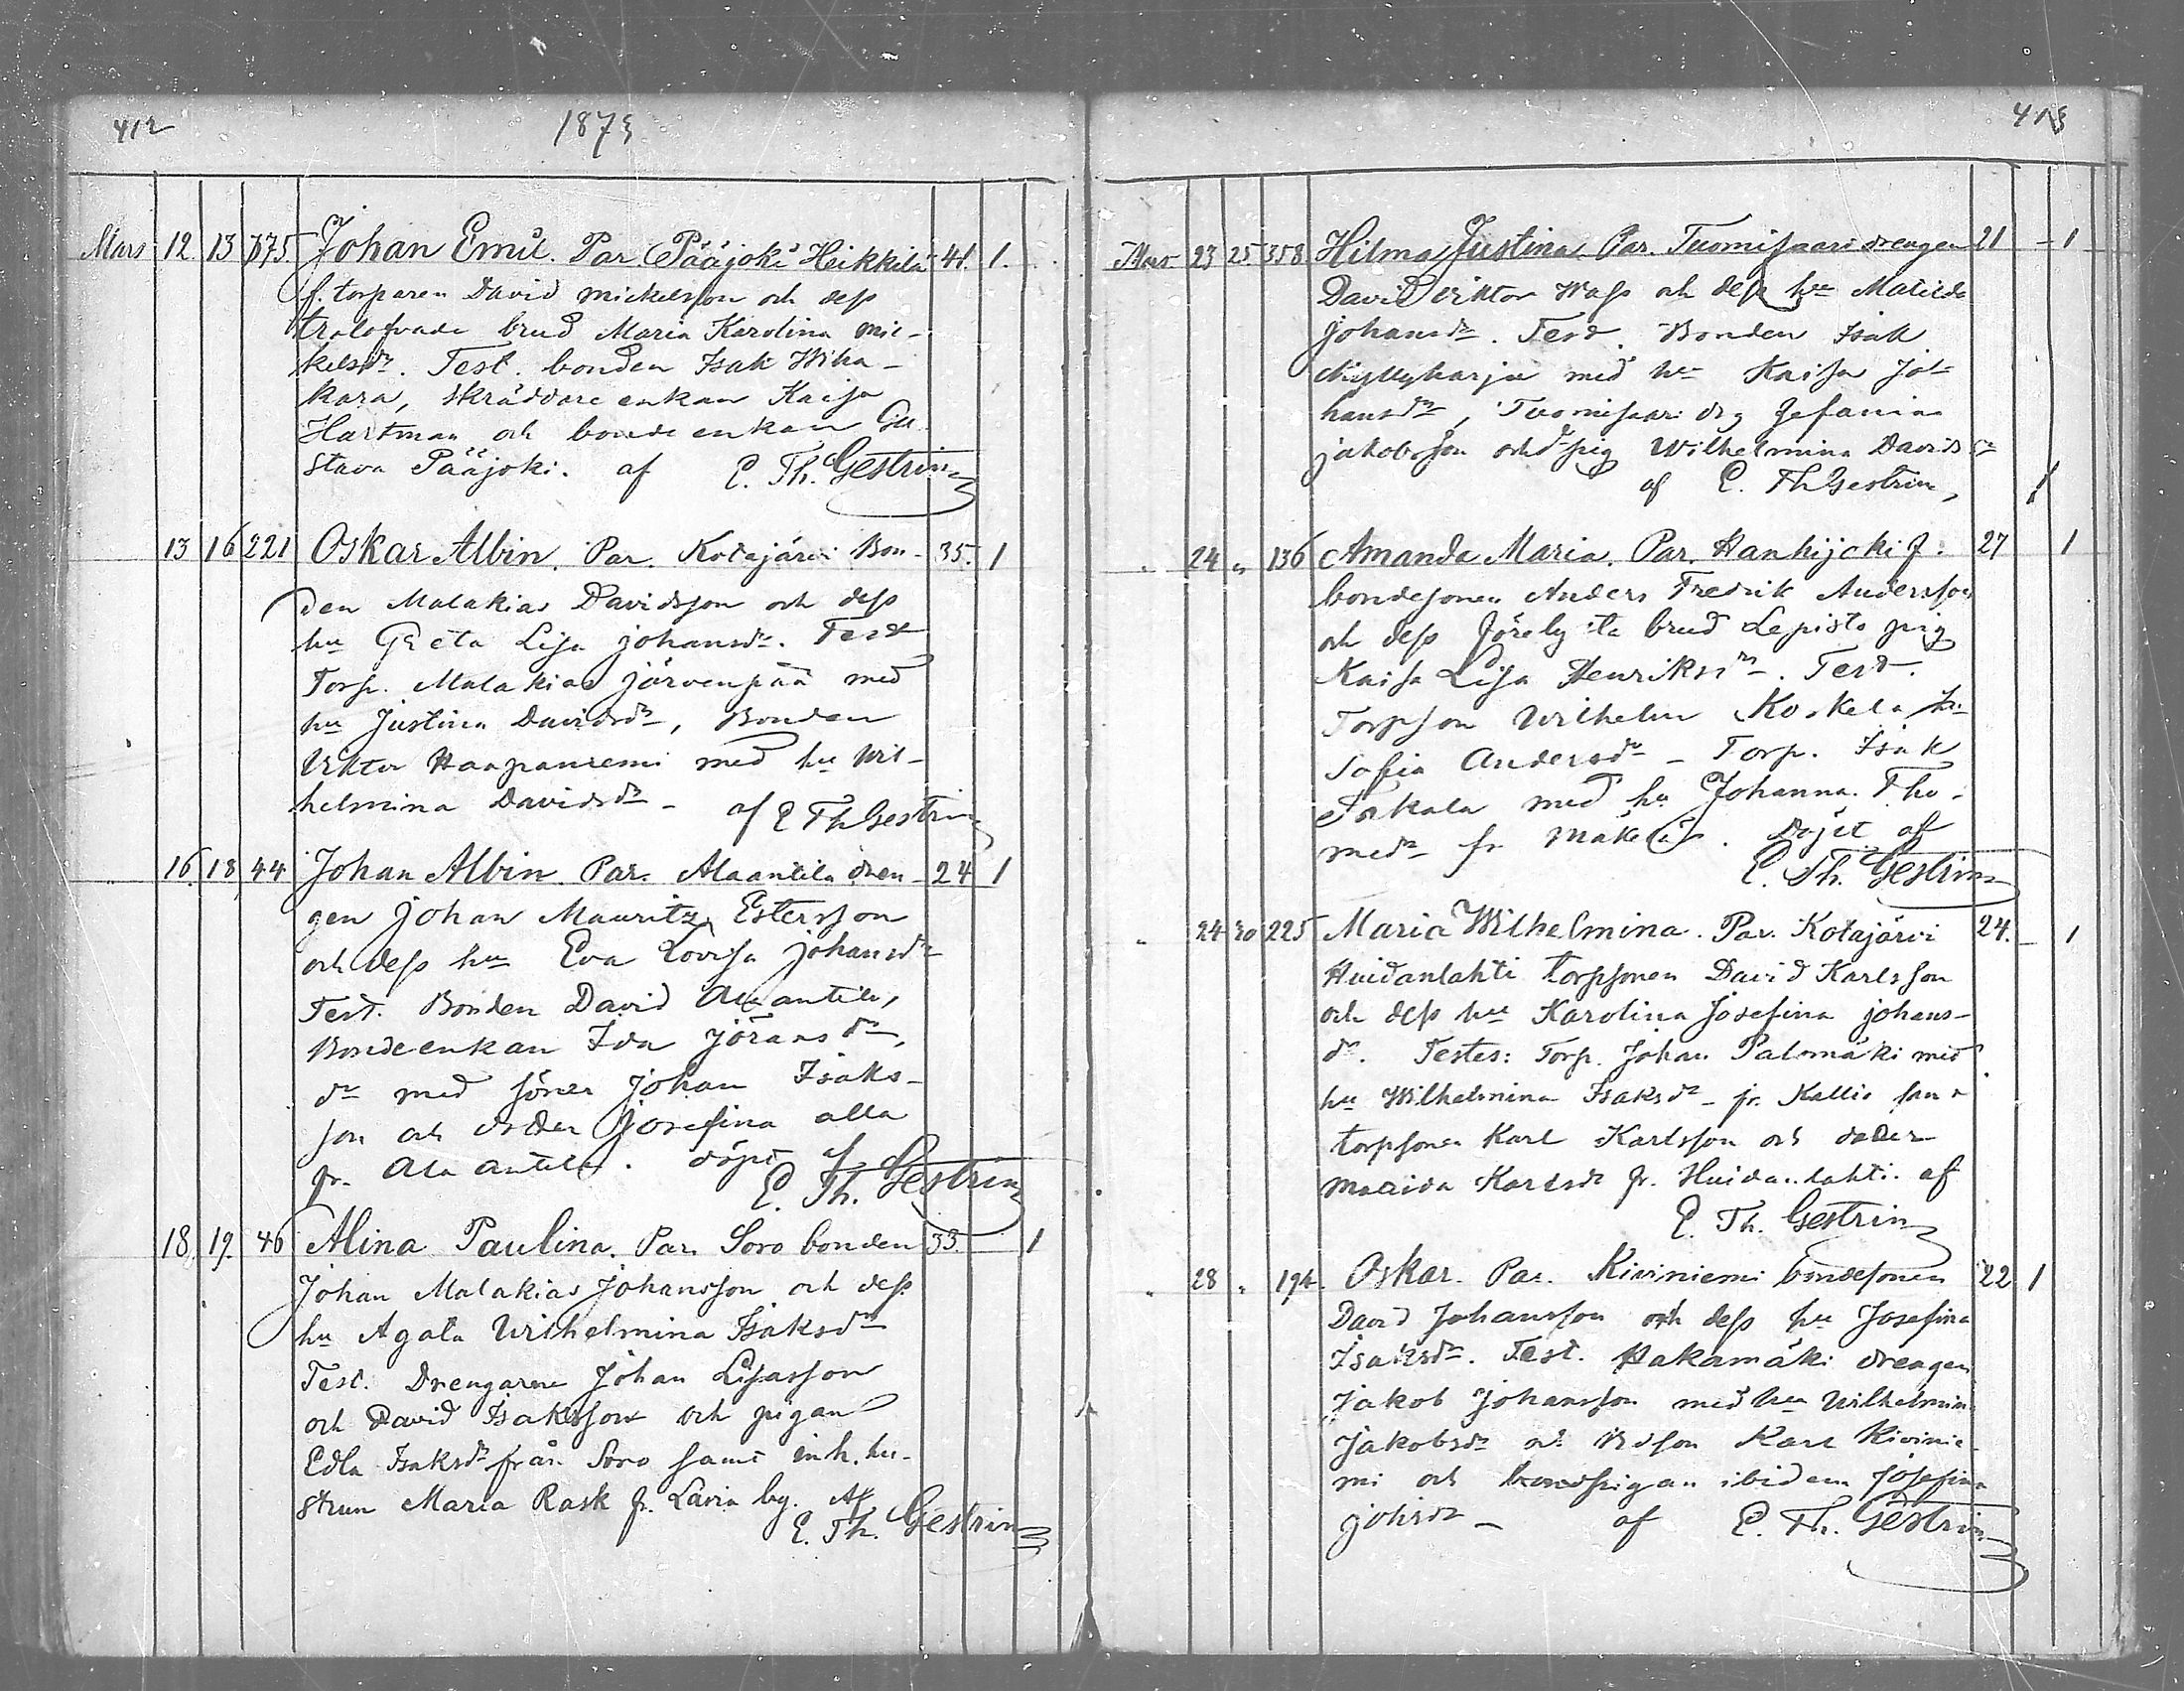 412
1873
Mars 12. 13 375. Johan Emil. Par. Pääjoki Heikkilä 41. 1.
f. torparen David Mickelsson och dess
trolofvade brud Maria Karolina Mic-
kelsdr. Test. bonden Isak Wiha-
kara, skräddare enkan Kaisa
Hartman och bonde enkan Gu
stava Pääjoki. af E. Th. Gestrin
13 16 221 Oskar Albin. Par. Kotajärvi Bon- 35. 1
den Malakias Davidsson och dess
hu Greta Lisa Johansdr. Test
Torp. Malakias Järvenpää med
hu Justina Davidsdr, Bonden
Viktor Haapaniemi med hu Wil-
helmina Davidsdr - af E Th Gestrin
" 16. 18 44 Johan Albin. Par. Alaantila dren- 24 1
gen Johan Mauritz Estersson
och dess hu Eva Lovisa Johansdr
Test. Bonden David Alaantila,
Bondeenkan Ida Jöransdr,
dr med söner Johan Isaks-
son och Josefina alla
fr. Ala antila. döpt af
E. Th. Gestrin
18. 19. 46 Alina Paulina. Par. Soro bonden 33. 1
Johan Malakias Johansson och dess
hu Agata Wilhelmina Isaksdr
Test. Drengarne Johan Lisasson
och David Isaksson och pigan
Edla Isaksdr från Soro samt inh. hu-
strun Maria Rask fr. Lavia by. Af
E. Th. Gestrin
413
Mars 23 25. 358 Hilma Justina Par. Tuomisaari drengen 21 - 1
David Viktor Wass och dess hu Matilda
Johansdr. Test. Bonden Isak
Myllyharju med hu Kaisa Jo-
hansdr, Tuomisaari drg Zefanias
Jakobsson och pig Wilhelmina Davidsdr
af E. Th Gestrin,
" 24 " 136 Amanda Maria. Par. Hanhijoki f. 27 1
bondesonen Anders Fredrik Andersson
och dess brud Lepistö pig
Kaisa Lisa Henriksdr. Test.
Torpson Wilhelm Koskela hu
Sofia Andersdr - Torp. Isak
Torkala med hu Johanna Tho-
masdr fr Mäkelä. Döpt af
E. Th. Gestrin
" 24 30 225 Maria Wilhelmina. Par. Kotajärvi 24. - 1
Huidanlahti torpsonen David Karlsson
och dess hu Karolina Josefina Johans-
dr. Testes: Torp. Johan Palomäki med
hu Wilhelmina Isaksdr - fr. Kallio samt
torpsonen Karl Karlsson och dotter
Karlsdr fr. Huidanlahti. af
E. Th. Gestrin
" 28 " 194. Oskar. Par. Kiviniemi bondesonen 22 1
David Johansson och dess hu Josefina
Isaksdr. Test. Hakamäki drengen
Jakob Johansson med hu Wilhelmina
Jakobsdr och bdson Karl Kivinie-
mi och bondpigan ibidem Josefina
Johsdr - af E. Th. Gestrin